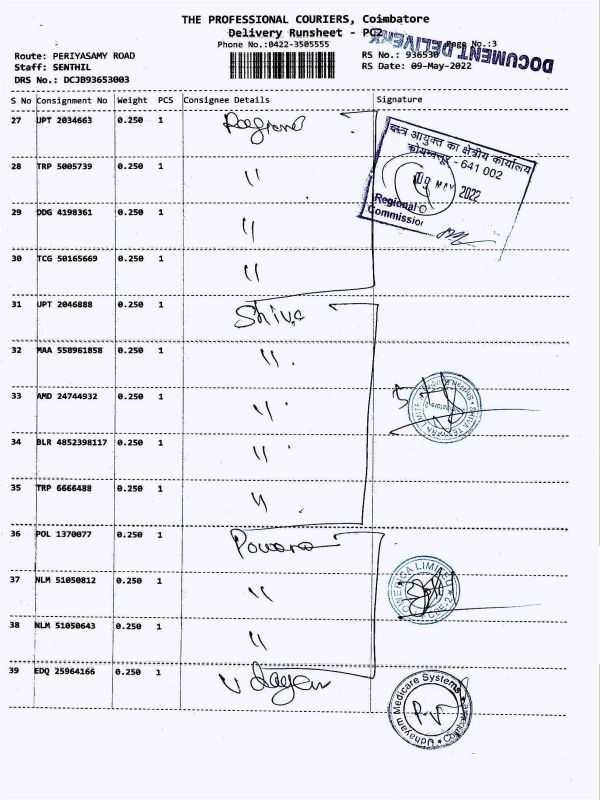 THE PROFESSIONAL COURIERS, Coimbatore
Delivery Runsheet - PC2
Phone No.:0422-3505555
Page No.:3
DOCUMENT DELIVERY
Route: PERIYASAMY ROAD
RS No.: 936530
Staff: SENTHIL
RS Date: 09-May-2022
DRS No.: DCJB93653003
S No Consignment No Weight PCS Consignee Details Signature
27 UPT 2034663 0.250 1
वस्त्र आयुक्त का क्षेत्रीय कार्यालय
कोयम्बत्तूर - 641 002
09 MAY 2022
Regional O
Commission
28 TRP 5005739 0.250 1 "
29 DDG 4198361 0.250 1 "
30 TCG 50165669 0.250 1 "
31 UPT 2046888 0.250 1 Shiva
32 MAA 558961858 0.250 1 "
33 AMD 24744932 0.250 1 "
SHIVA TEXYARN LIMITED
34 BLR 4852398117 0.250 1 "
35 TRP 6666488 0.250 1 "
36 POL 1370077 0.250 1
37 NLM 51050812 0.250 1 "
LIMITED
CBE-2
38 NLM 51050643 0.250 1 "
39 EDQ 25964166 0.250 1
Udhayam Medicare Systems